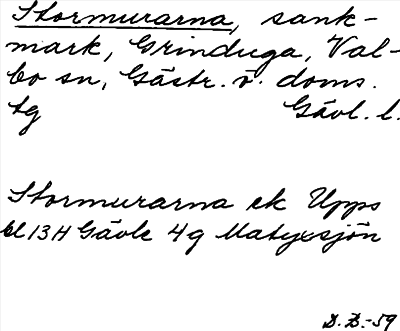 Stormurarna, sank-
mark, Grinduga, Val-
bo sn, Gästr. ö. doms.
tg Gävl. l.
Stormurarna ek Upps
bl 13H Gävle 4g Matyxsjön
D.Z.-59